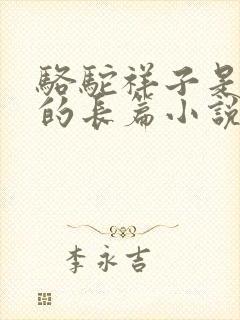 駱駝祥子是
的長篇小說
李永吉